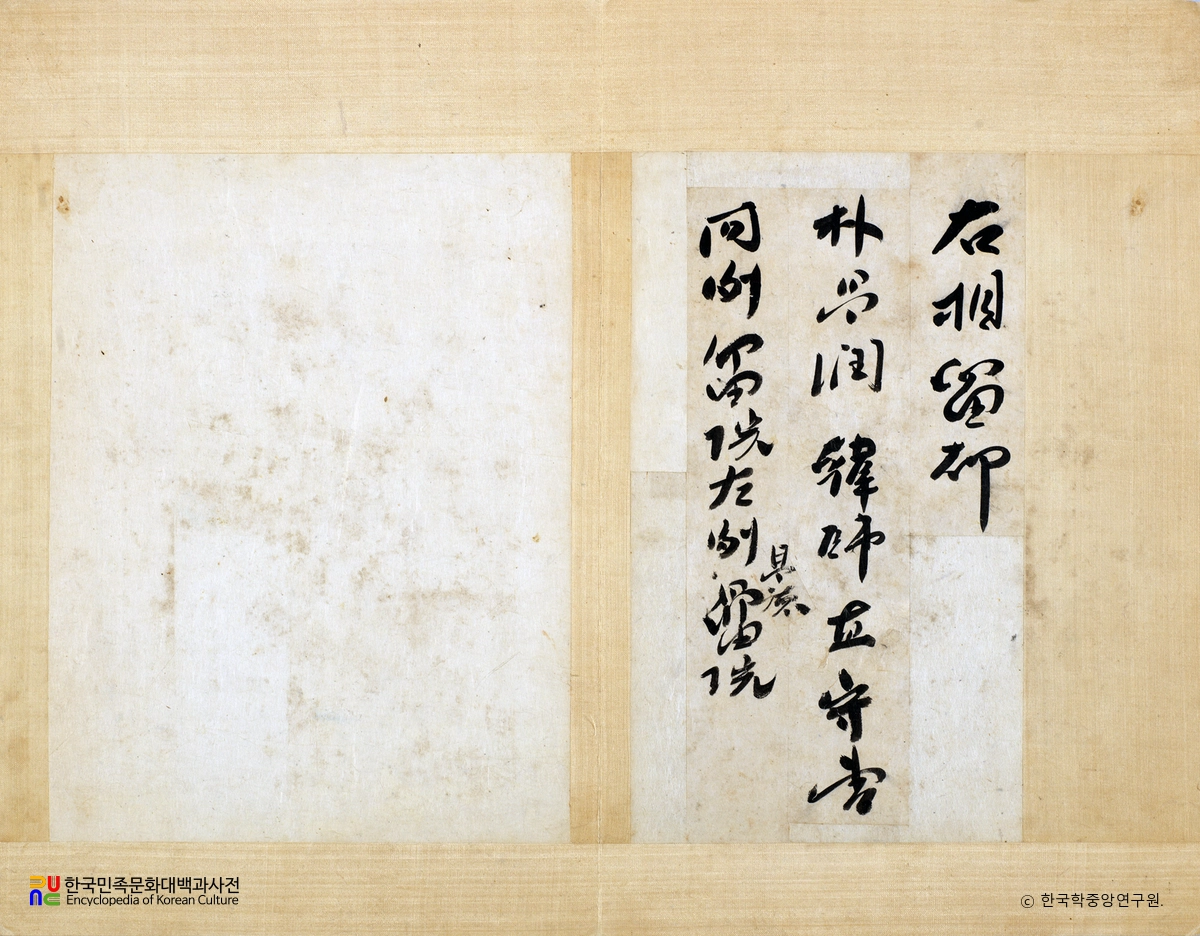 右相留都
朴興潤 韓師直守門
同例留院左例留院
具癈
한국민족문화대백과사전
Encyclopedia of Korean Culture
ⓒ 한국학중앙연구원.